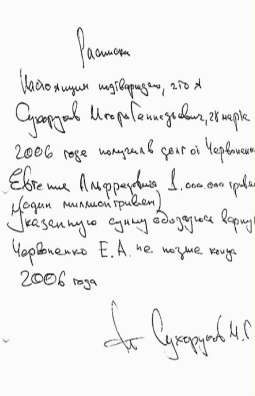 Расписка
Настоящим подтверждаю, что я
Сухоруков Игорь Геннадьевич, 28 марта
2006 года получил в долг от Червоненко
Евгения Альфредовича 1.000.000 гривен
(один миллион гривен)
Указанную сумму обязуюсь верну
Червоненко Е.А. не позже конца
2006 года
Сухоруков И.Г